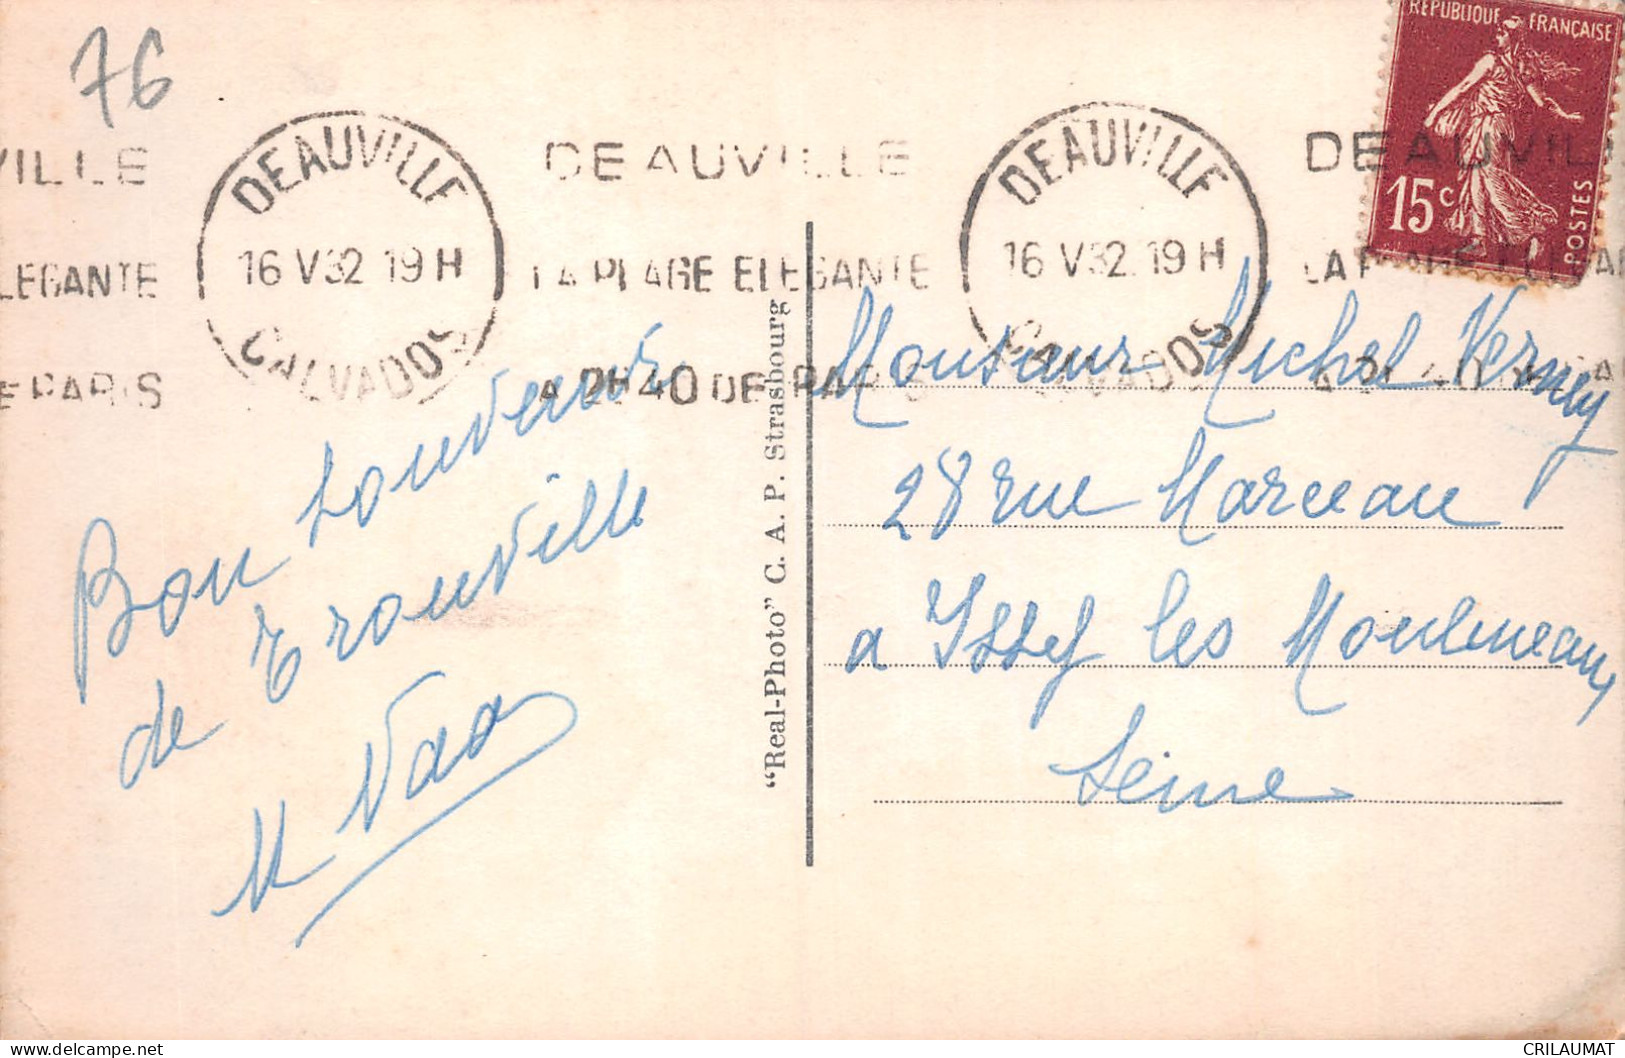 76
RÉPUBLIQUE FRANÇAISE
15c
POSTES
VILLE
ELEGANTE
DE PARIS
DEAUVILLE
16 V 32 19 H
CALVADOS
DEAUVILLE
LA PLAGE ELEGANTE
A 2H40 DE PARIS
DEAUVILLE
16 V 32 19 H
CALVADOS
DEAUVILLE
LA PLAGE ELEGA
Bon souvenir
de Trouville
"Real-Photo" C. A. P. Strasbourg
Monsieur Michel Verney
28 rue Marceau
a Issy les Moulineaux
Seine
CRILAUMAT